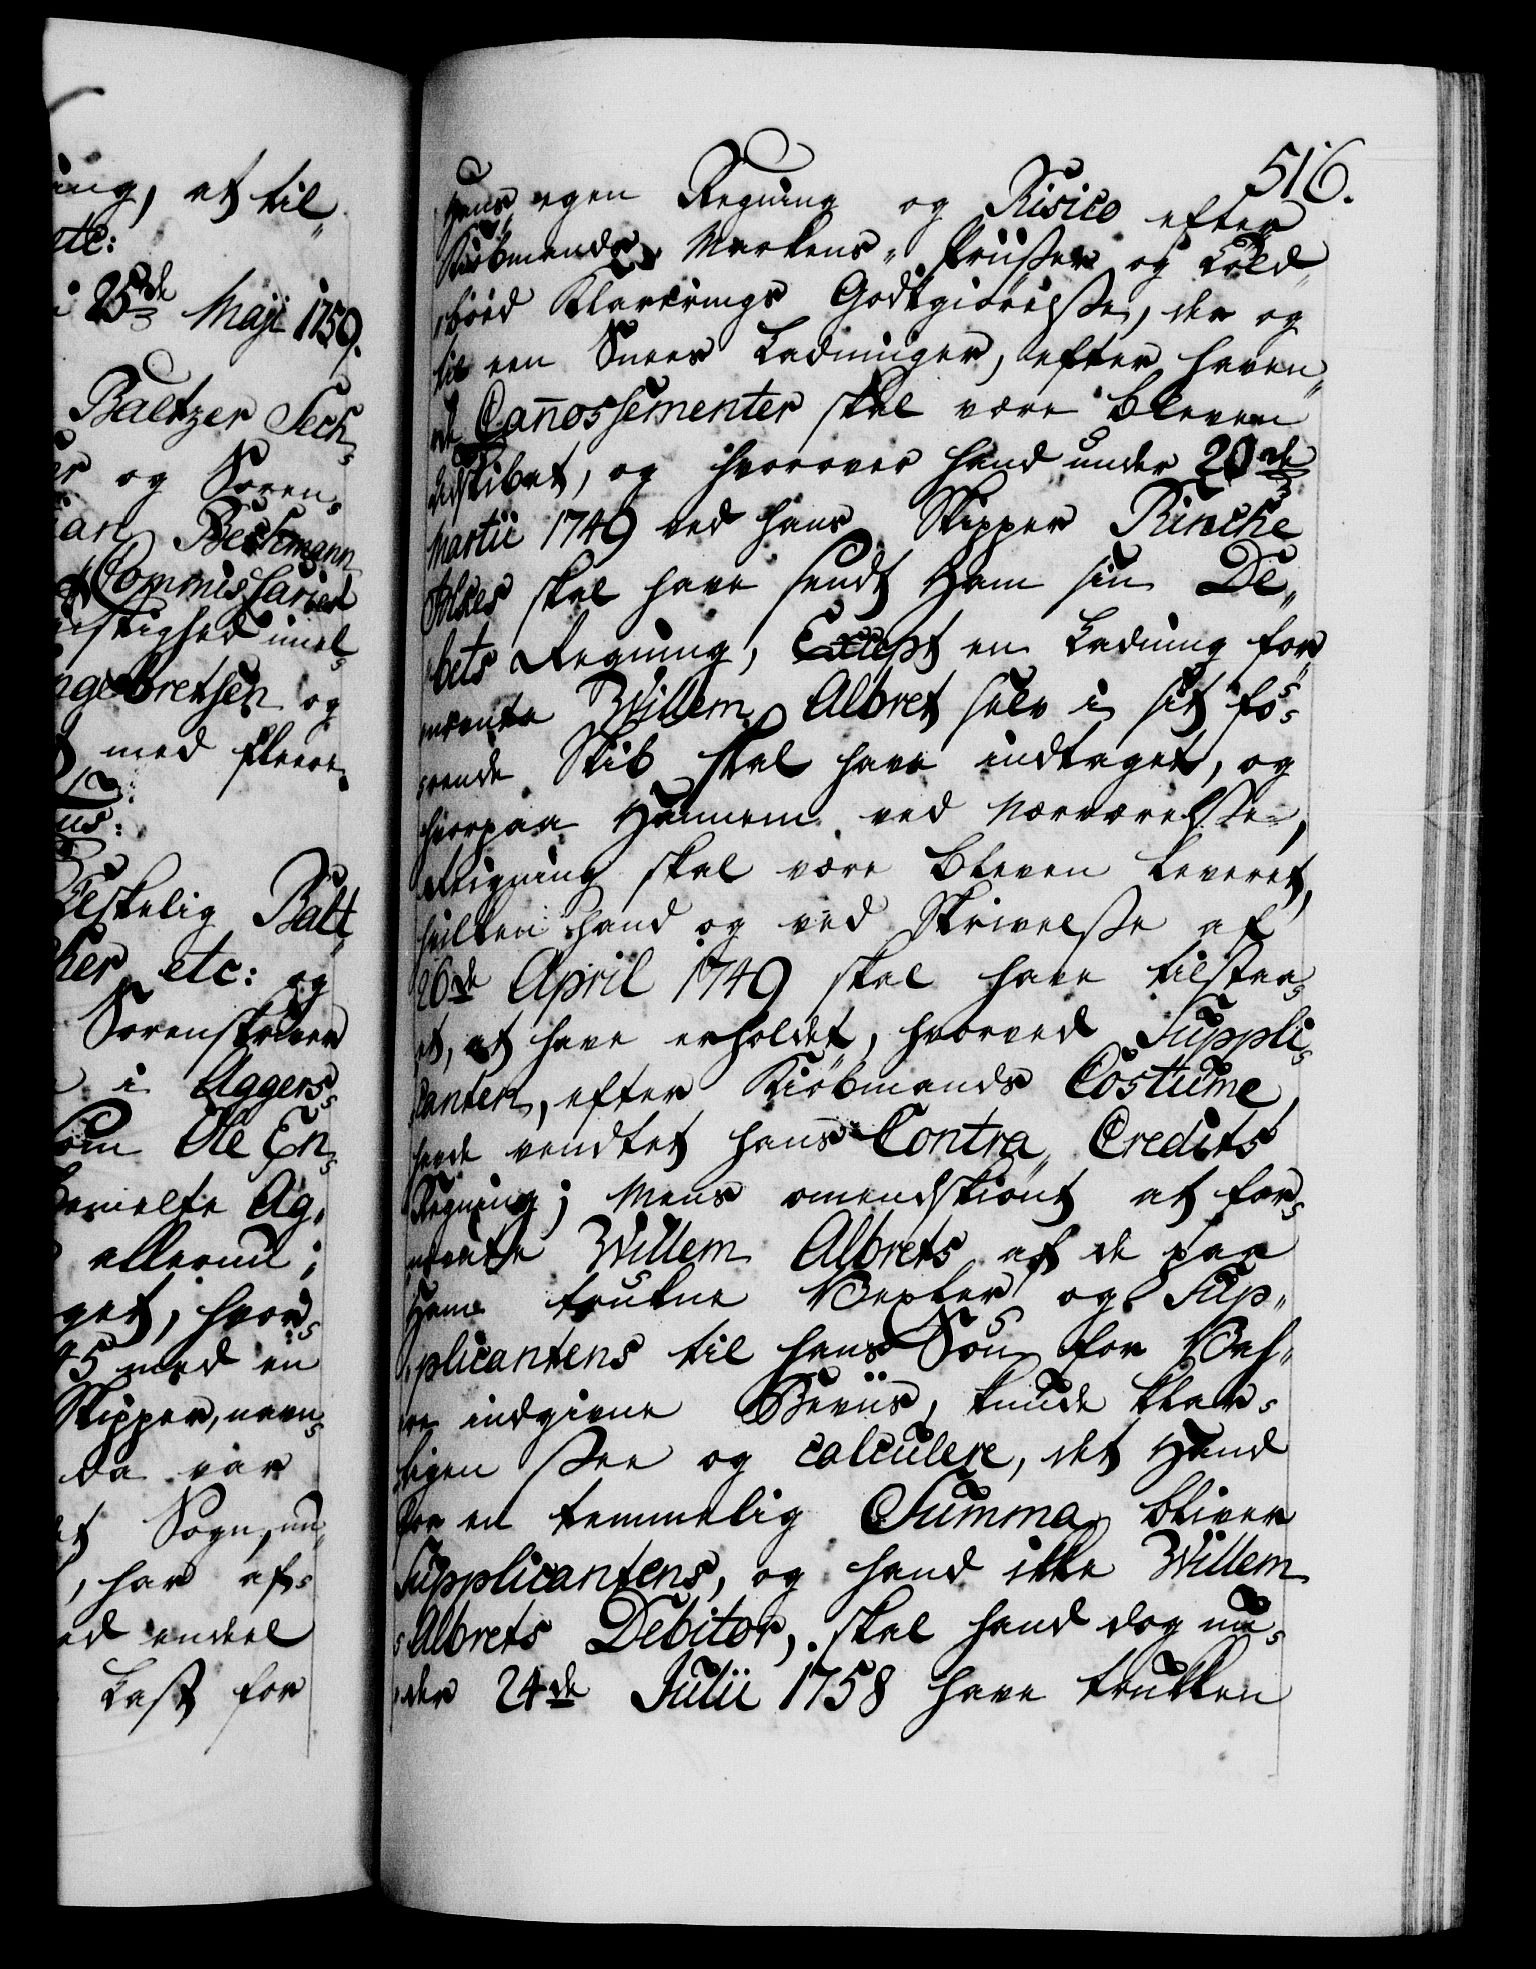 ing, at til„
etc:
25de Maji 1759.
Baltzer Sech„
er og Soren„
ian Beckmann
Commissarier
mel„
ngebretsen og
med fleere.
us:
Elskelig Balt„
ker etc: og
Sorenskriver
i Aggers„
som Ole En„
bemelte Ag„
allerund:
get, hvor„
45 med en
Skipper, navn„
da var
et Sogn, un„
, har af„
ed endeel
Last for
516.
Hans egen Regning og Risico efter
Kiøbmands Markens„ Priisser og Told„
boed Klarerings Godtgiørelsse, der og
til een Snees Ladninger, efter haven„
de Cañossementer skal være bleven
udskibet, og hvorover hand under 20de
Martii 1749 ved hans Skipper Rincke
skal have sendt Ham sin De„
bets Regning, Except en Ladning for„
nævnte Willem Albret selv i sit fø„
rende Skib skal have indtaget, og
hvorpaa Hannem ved Nærværelsse,
Regning skal være bleven leveret,
hvilken hand og ved Skrivelsse af
26de April 1749 skal have tilstaa„
et, at have erholdet, hvorved Suppli„
canten, efter Kiøbmands Costume,
havde vendtet hans Contra„ Credits
Regning; Mens omendskiønt at for„
nævnte Willem Albrets af de paa
Ham trukne Vexler og Sup„
plicantens til hans Søn for Vah„
re indgivne Beviis, kunde klar„
ligen see og calculere, det Hand
for en temmelig Summa bliver
Supplicantens, og hand ikke Willem
Albrets Debitor, skal hand dog un„
der 24de Julii 1758 have trukken